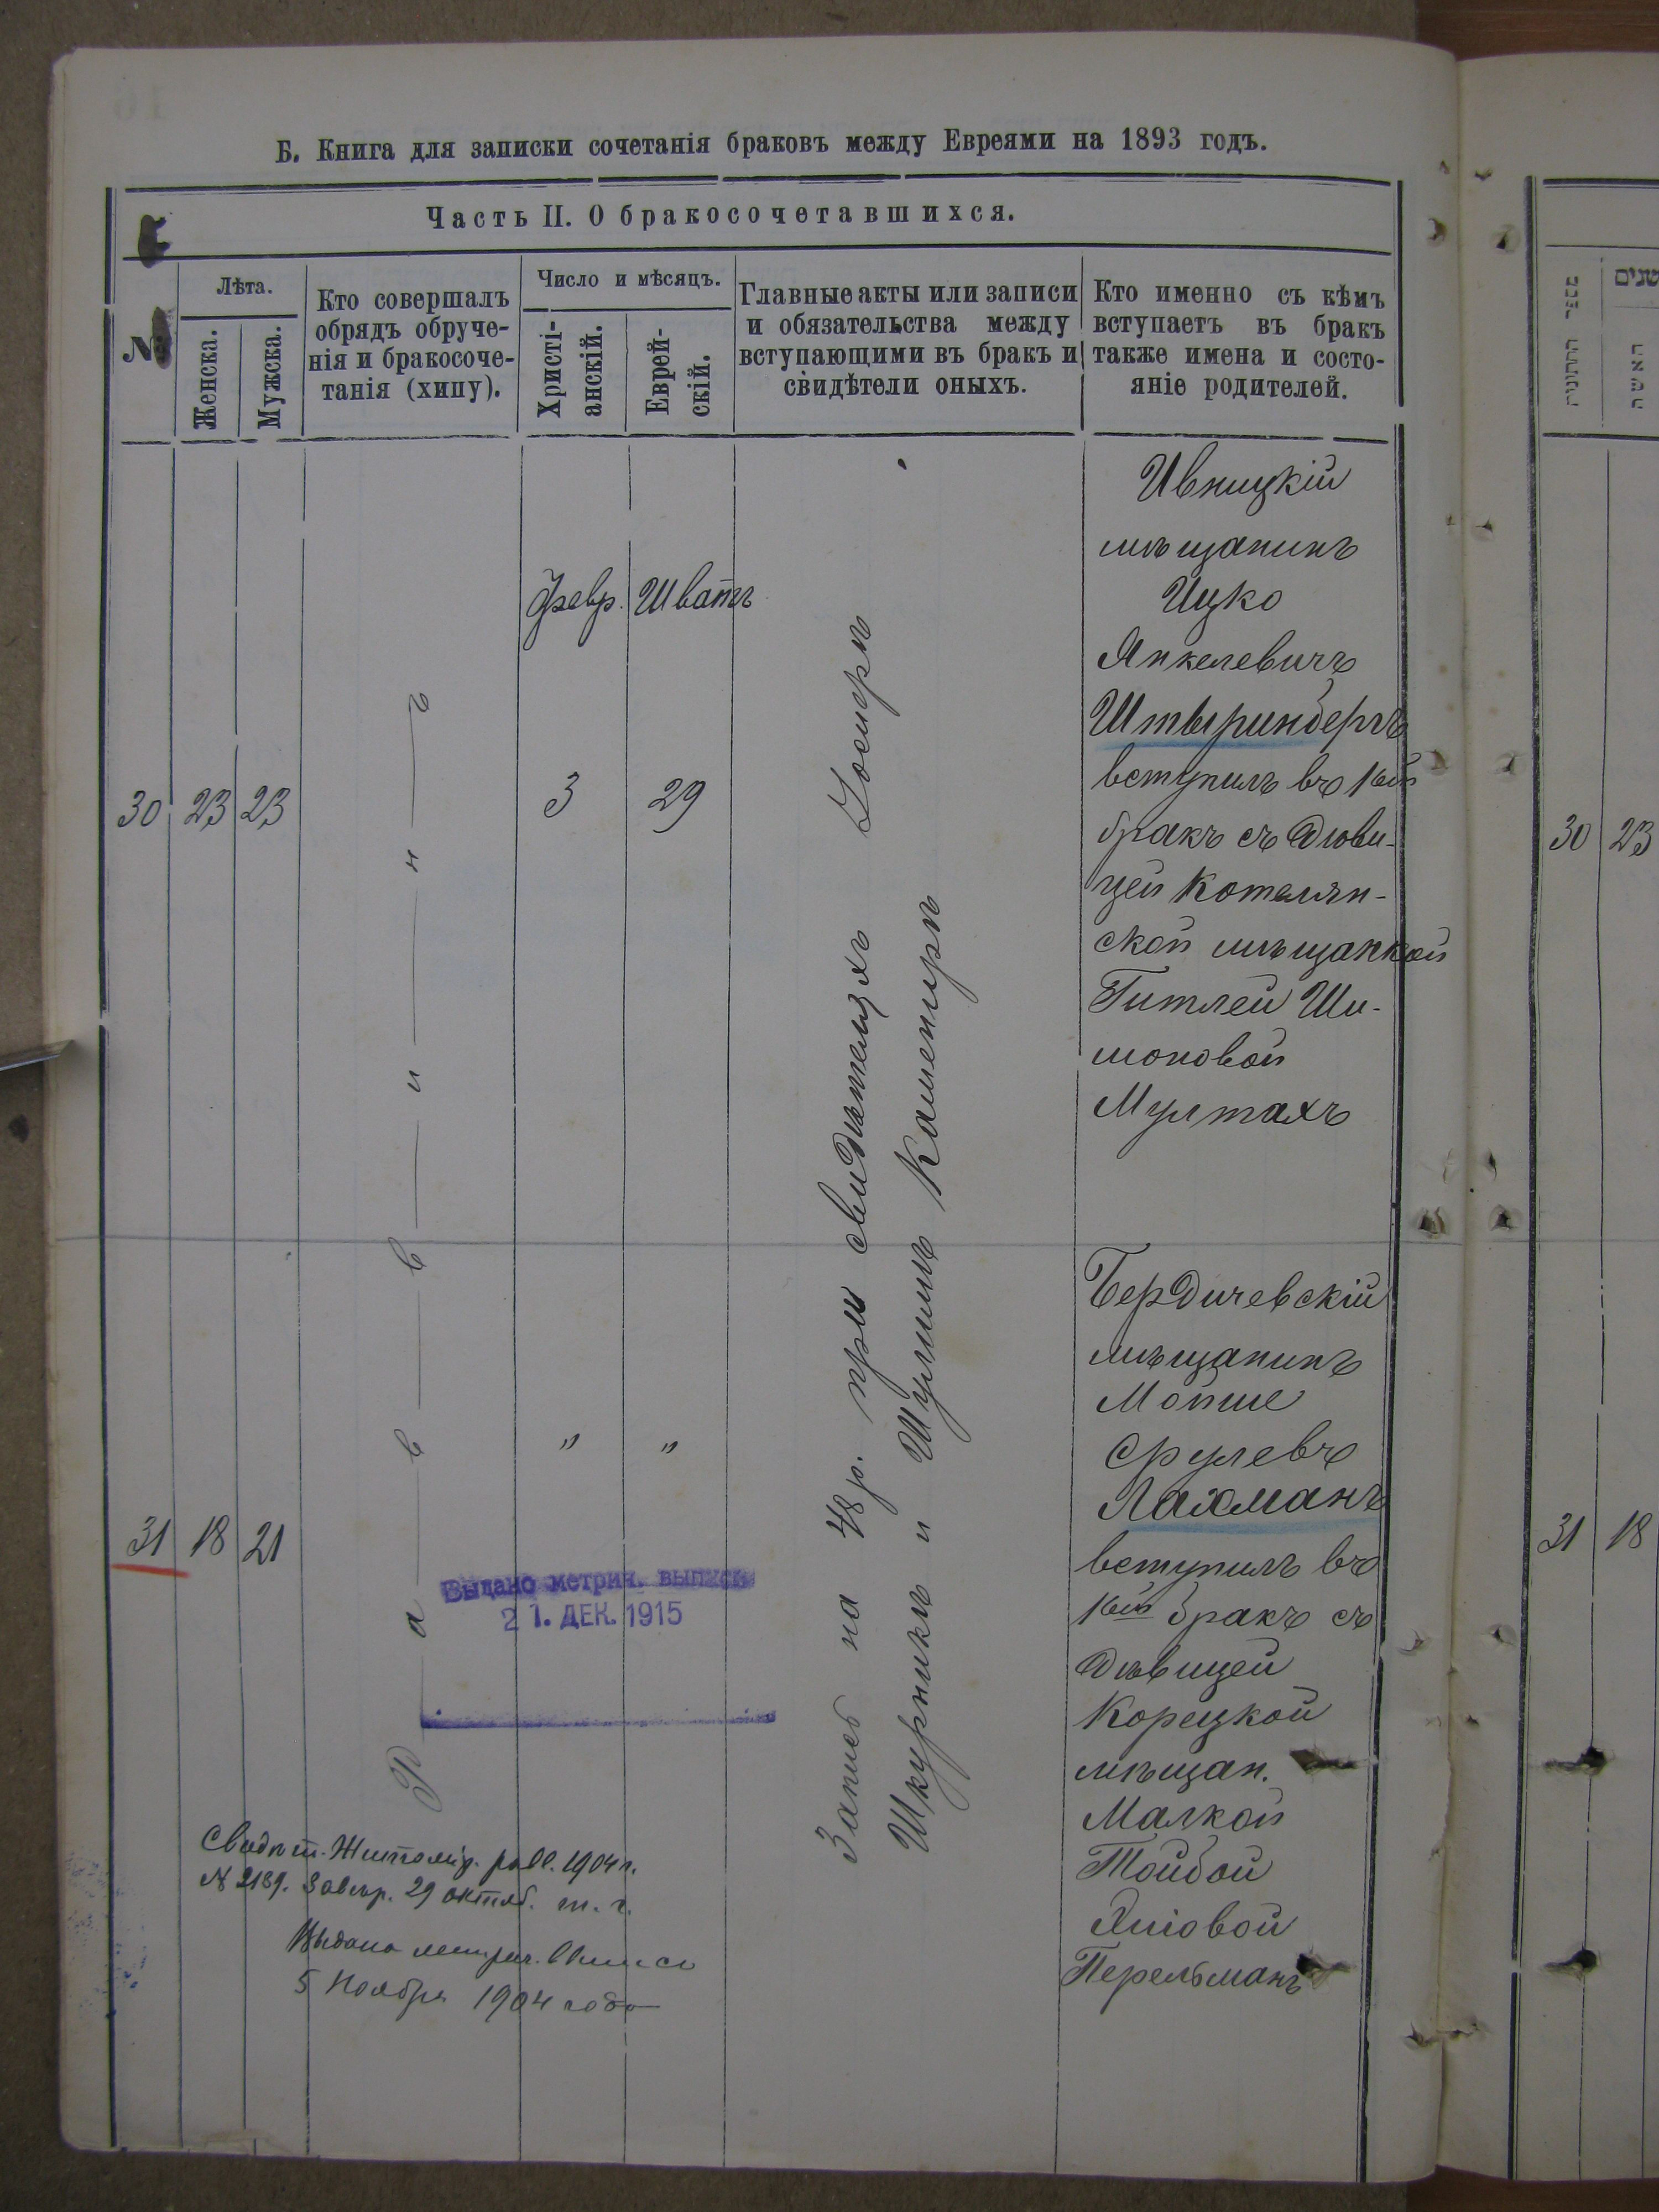 Б. Книга для записки сочетанія браковъ между Евреями на 1893 годъ.
Часть II. О бракосочетавшихся.
№
Лѣта.
Женска.
Мужска.
Кто совершалъ
обрядъ обруче-
нія и бракосоче-
танія (хипу).
Число и мѣсяцъ.
Христі-
анскій.
Еврей-
скій.
Главные акты или записи
и обязательства между
вступающими въ бракъ и
свидѣтели оныхъ.
Кто именно съ кѣмъ
вступаетъ въ бракъ
также имена и состо-
яніе родителей.
Р а в в и н ъ
Запись на 48 р. при свидѣтеляхъ Іосиръ
Шкурникъ и Шулимъ Камениръ
30 23 23
Февр. Шватъ
3 29
Ивницкій
мѣщанинъ
Ицко
Янкелевичъ
Штыринбергъ
вступилъ въ 1ый
бракъ съ дѣви-
цей Котелян-
ской мѣщанкой
Гитлей Ши-
моновой
Мултахъ
31 18 21
" "
Бердичевскій
мѣщанинъ
Мошше
Срулевъ
Лахманъ
вступилъ въ
1ый бракъ съ
дѣвицей
Корецкой
мѣщан.
Малкой
Тойбой
Яновой
Перельманъ
Выдано метрич. выпись
21. ДЕК. 1915
Свидѣт. Житомір. равв. 1904 г.
№ 2189. Завѣр. 29 октяб. т. г.
Выдана метрич. выпись
5 Ноября 1904 года
מספר החתונות
שנים
האשה
30 23
31 18